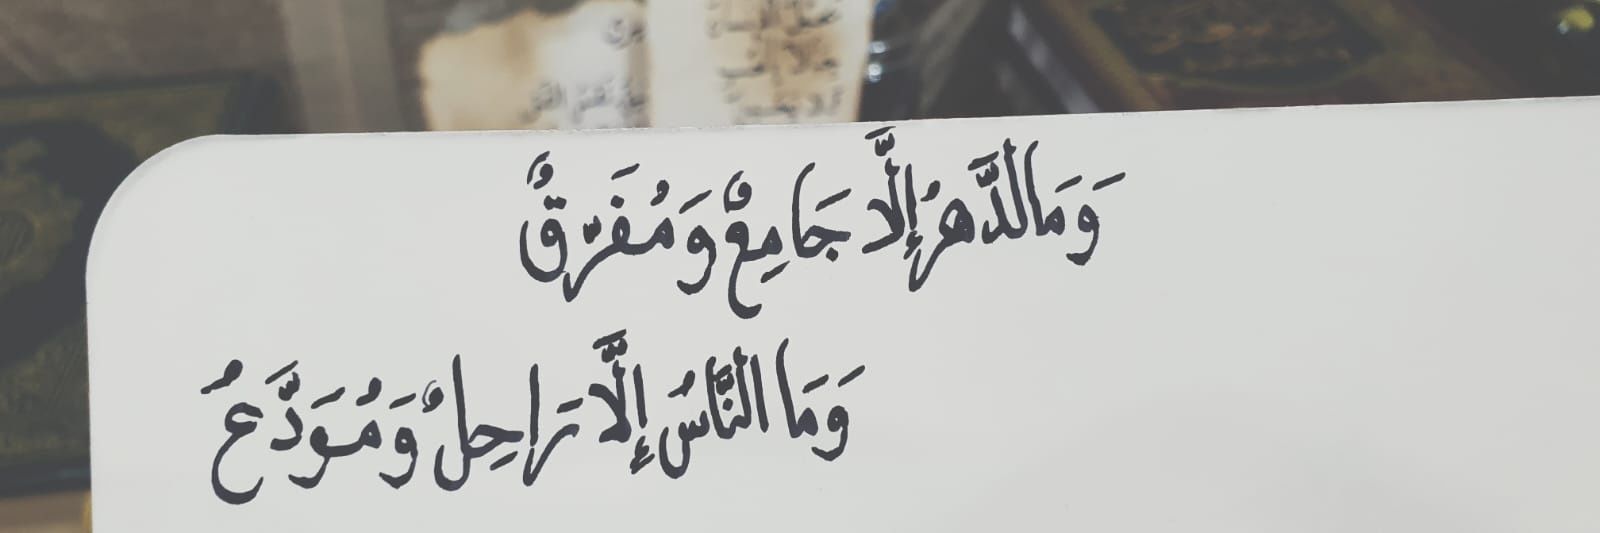 وَمَا الدَّهرُ إِلَّا جَامِعٌ وَمُفَرّقٌ
وَمَا النَّاسُ إِلَّا رَاحِلٌ وَمُوَدَّعُ